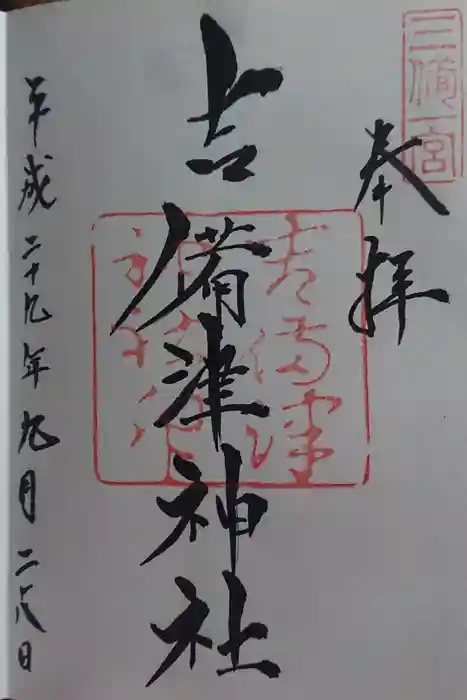 三備一宮
奉拝
吉備津神社
平成二十九年九月二八日